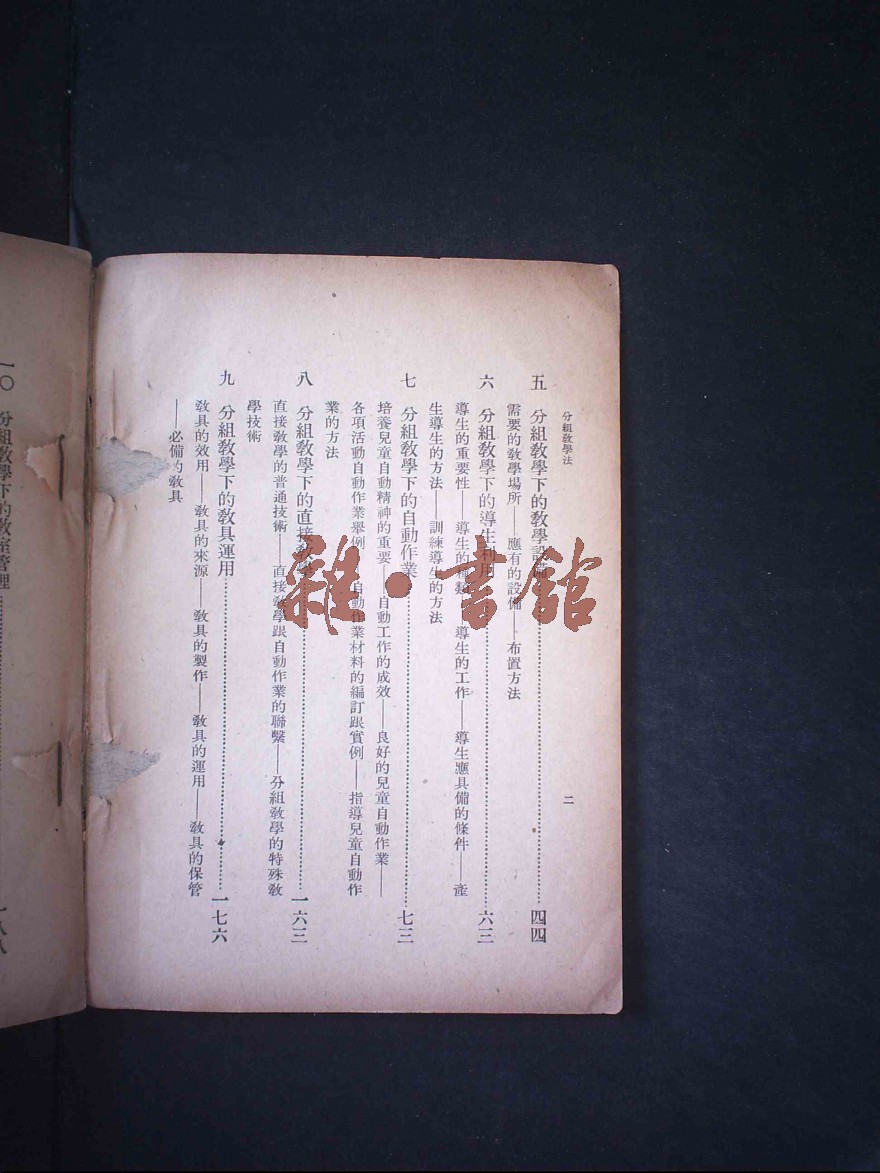 分組敎學法
二
五 分組敎學下的敎學設備……四四
需要的敎學場所——應有的設備——布置方法
六 分組敎學下的導生利用……六三
導生的重要性——導生的種類——導生的工作——導生應具備的條件——產
生導生的方法——訓練導生的方法
七 分組敎學下的自動作業……七三
培養兒童自動精神的重要——自動工作的成效——良好的兒童自動作業——
各項活動自動作業舉例——自動作業材料的編訂跟實例——指導兒童自動作
業的方法
八 分組敎學下的直接敎學……一六三
直接敎學的普通技術——直接敎學跟自動作業的聯繫——分組敎學的特殊敎
學技術
九 分組敎學下的敎具運用……一七六
敎具的效用——敎具的來源——敎具的製作——敎具的運用——敎具的保管
——必備的敎具
一〇 分組敎學下的敎室管理……一八八
雜·書館